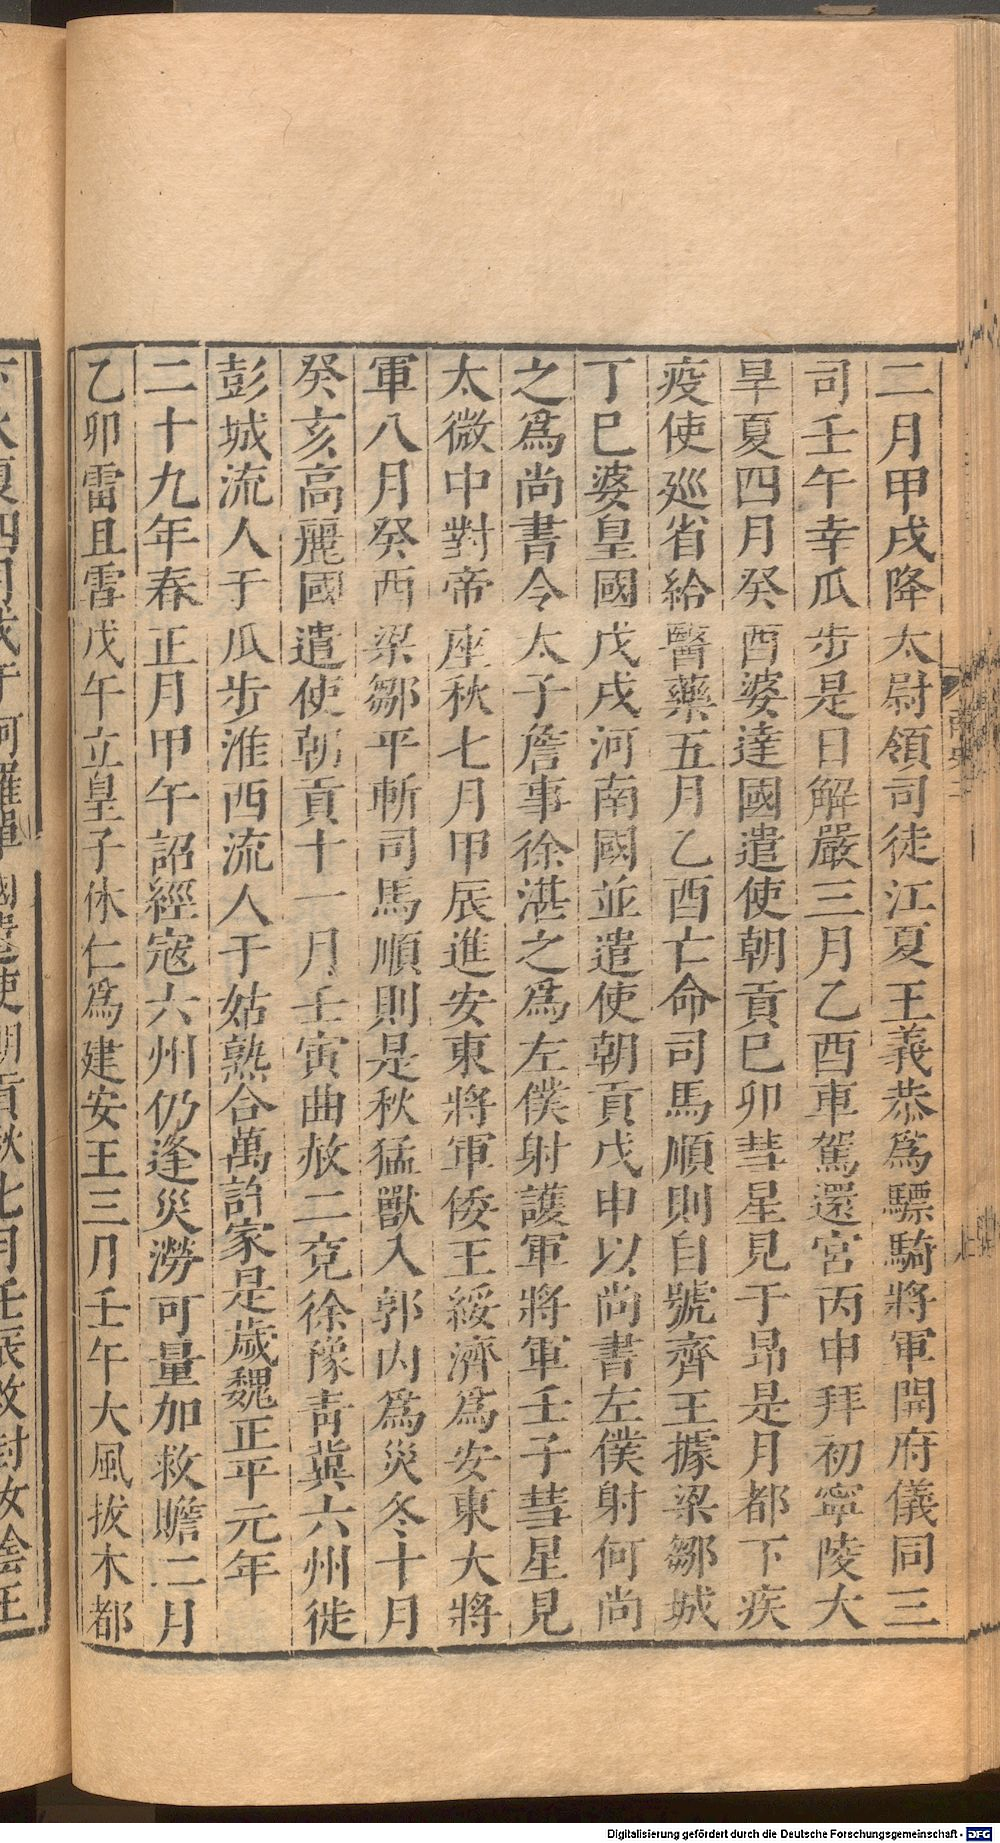 二月甲戌降太尉領司徒江夏王義恭爲驃騎將軍開府儀同三
司壬午幸瓜步是日解嚴三月乙酉車駕還宮丙申拜初寧陵大
旱夏四月癸酉婆達國遣使朝貢巳卯彗星見于昴是月都下疾
疫使廵省給醫藥五月乙酉亡命司馬順則自號齊王據梁鄒城
丁巳婆皇國戊戌河南國並遣使朝貢戊申以尚書左僕射何尚
之爲尚書令太子詹事徐湛之爲左僕射護軍將軍壬子彗星見
太微中對帝座秋七月甲辰進安東將軍倭王綏濟爲安東大將
軍八月癸酉梁鄒平斬司馬順則是秋猛獸入郭内爲災冬十月
癸亥高麗國遣使朝貢十一月壬寅曲赦二兗徐豫青冀六州徙
彭城流人于瓜步淮西流人于姑熟合萬許家是歲魏正平元年
二十九年春正月甲午詔經寇六州仍逢災澇可量加救贍二月
乙卯雷且雪戊午立皇子休仁爲建安王三月壬午大風拔木都
夏四月戊午訶羅單國遣使朝貢秋七月壬辰改封汝陰王
Digitalisierung gefördert durch die Deutsche Forschungsgemeinschaft - DFG